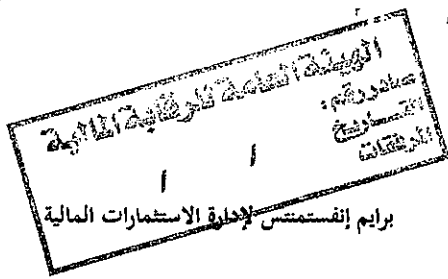 الهيئة العامة للرقابة المالية
صادر رقم:
التاريخ / /
المرفقات
برايم إنفستمنتس لإدارة الاستثمارات المالية